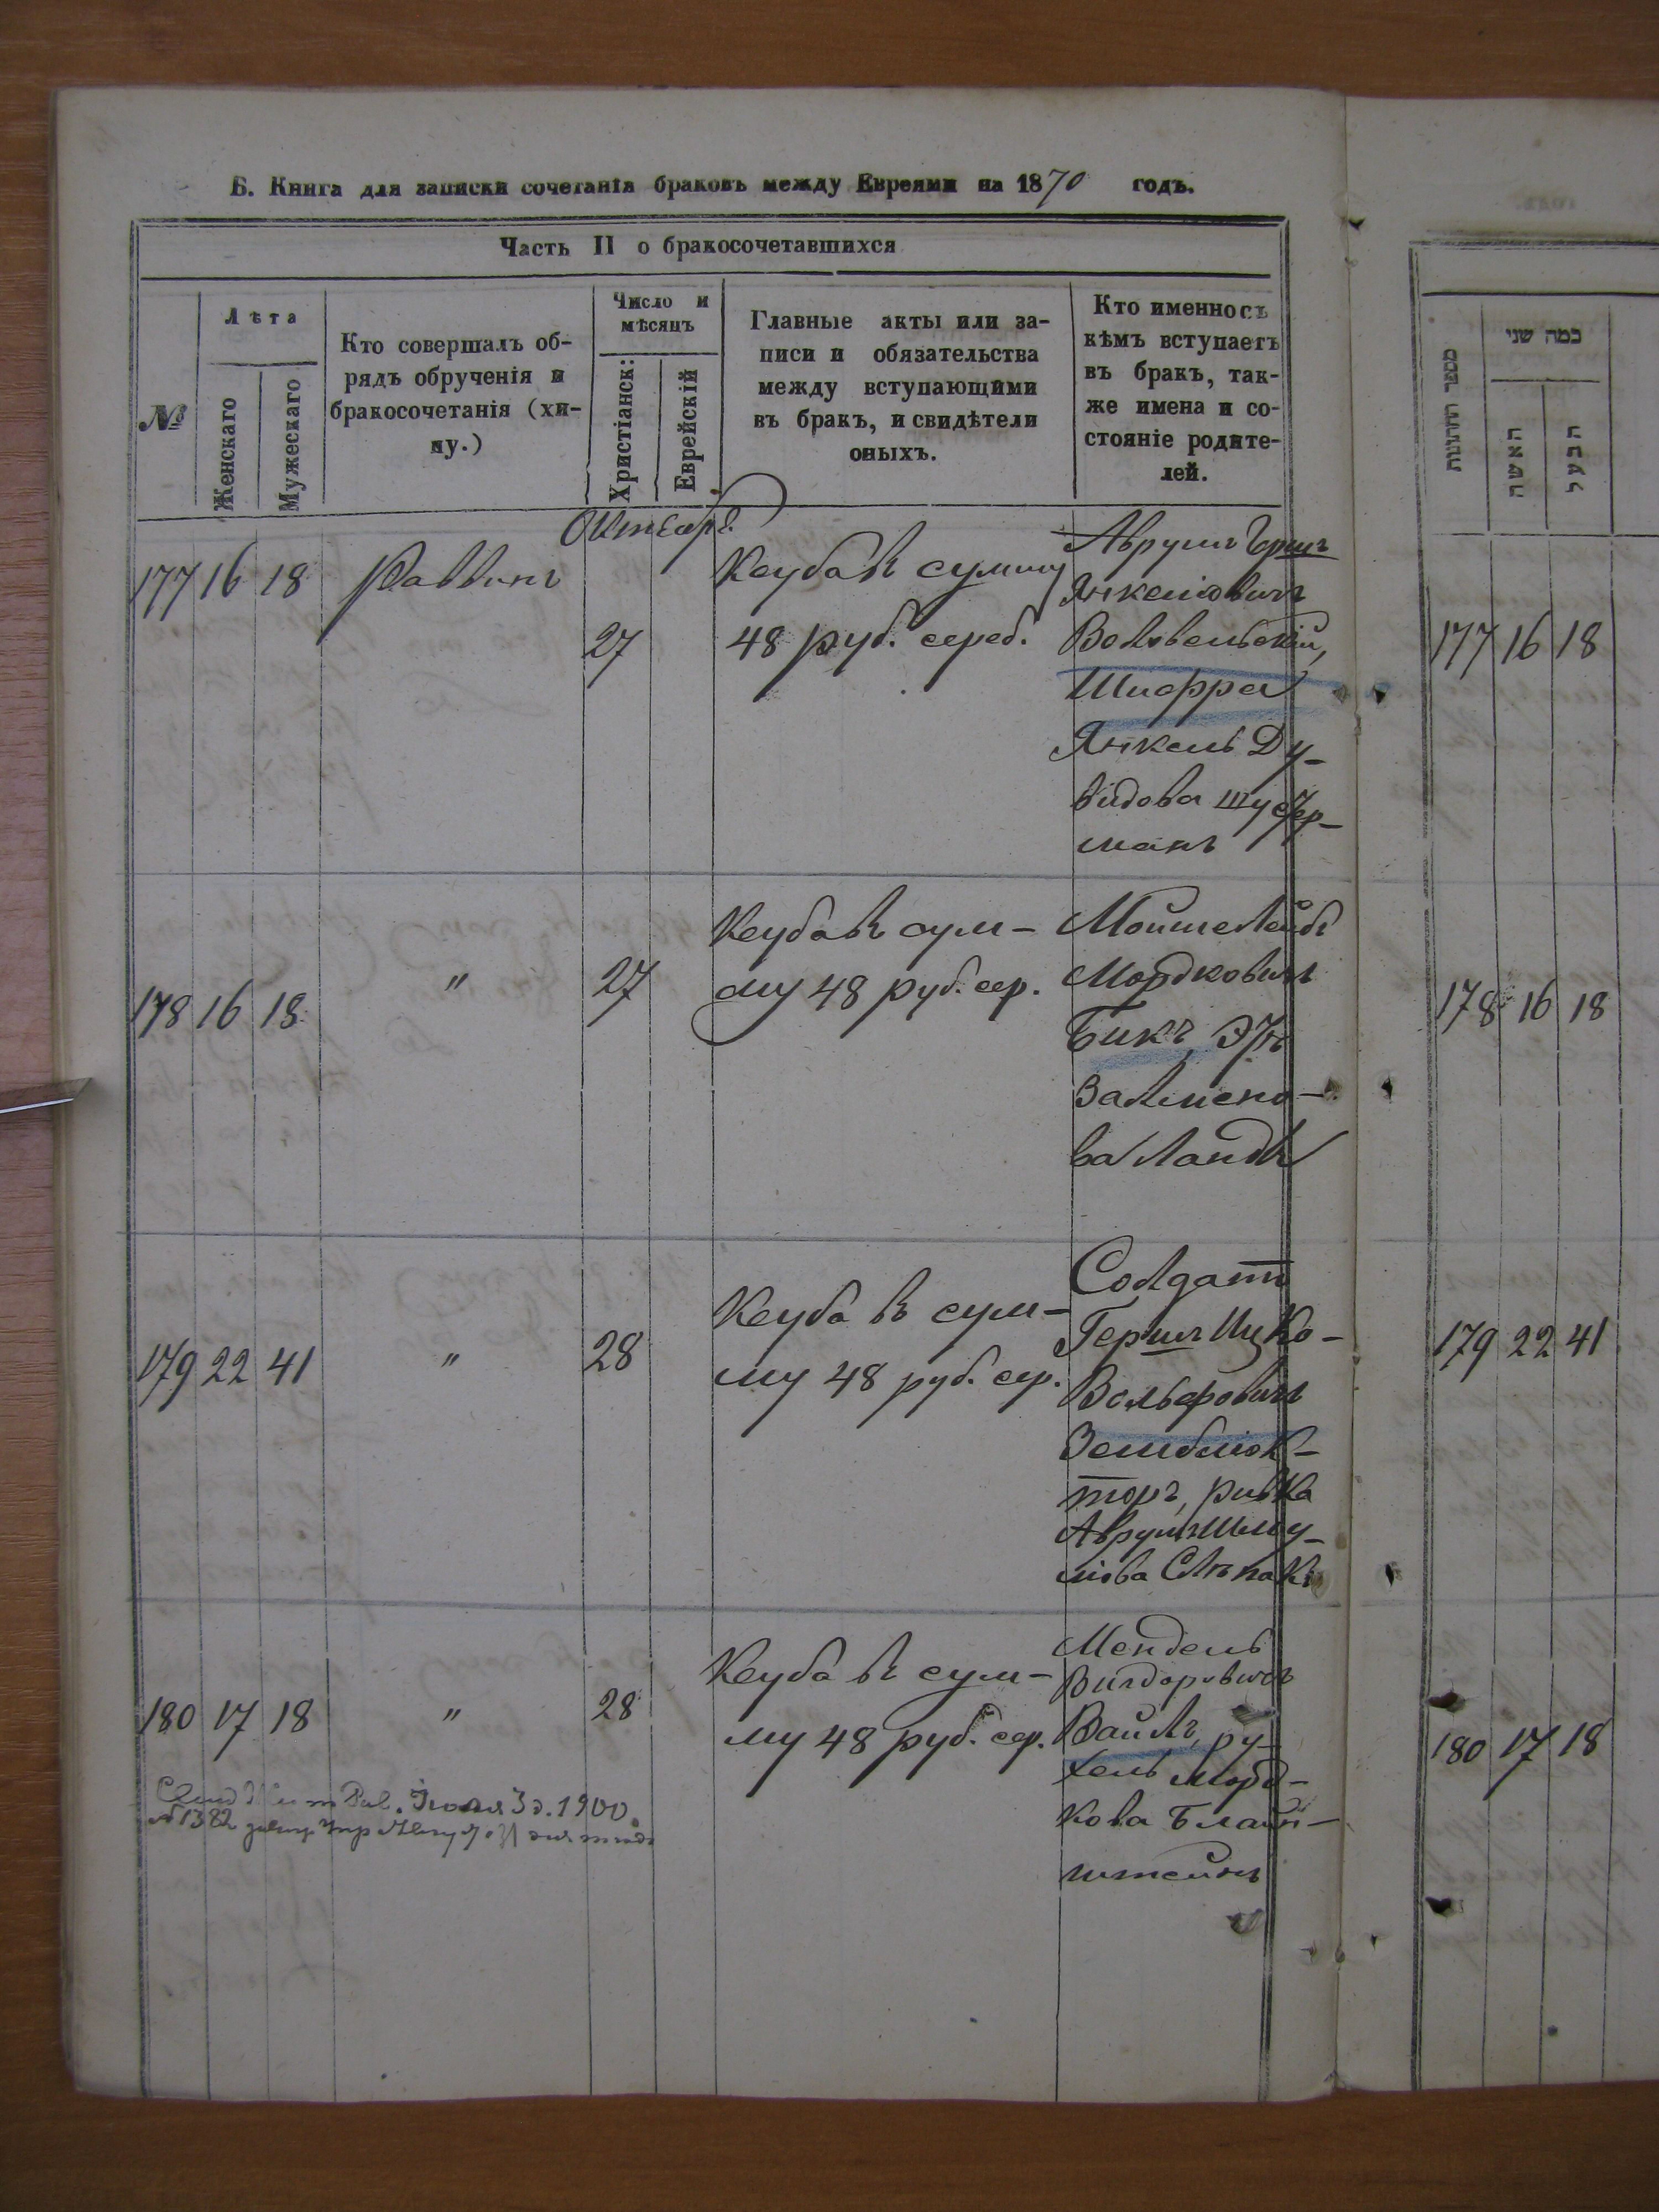 Б. Книга для записки сочетанія браковъ между Евреями на 1870 годъ.
Часть II о бракосочетавшихся
№
Лѣта
Женскаго
Мужескаго
Кто совершалъ об-
рядъ обрученія и
бракосочетанія (хи-
пу.)
Число и
мѣсяцъ
Христіанск:
Еврейскій
Главные акты или за-
писи и обязательства
между вступающими
въ бракъ, и свидѣтели
оныхъ.
Кто именно съ
кѣмъ вступаетъ
въ бракъ, так-
же имена и со-
стояніе родите-
лей.
Октября
177 16 18 Раввинъ
27
Кеуба въ сумму
48 руб. сереб.
Аврумъ Гершъ
Янкелiовичъ
Шифра
Янкель Ду-
видова Шустер-
манъ
178 16 18 " 27
Кеуба въ сум-
му 48 руб. сер.
Мойше Лейбъ
Мордковичъ
Бикъ,
Залмено-
ва Ланда
179 22 41 " 28
Кеуба въ сум-
му 48 руб. сер.
Солдатъ
Гершъ Ицко-
Вольфовичъ
торъ, Ривка
Аврумъ Шму-
лiова Слѣпакъ
180 17 18 " 28
Кеуба въ сум-
му 48 руб. сер.
Мендель
Вигдоровичъ
Вайлъ, Ру-
хель Морд-
кова Блайн-
штейнъ
Іюля 3 д. 1900
№ 1382
מספר החתונות
כמה שני
האשה
הבעל
177 16 18
178 16 18
179 22 41
180 17 18